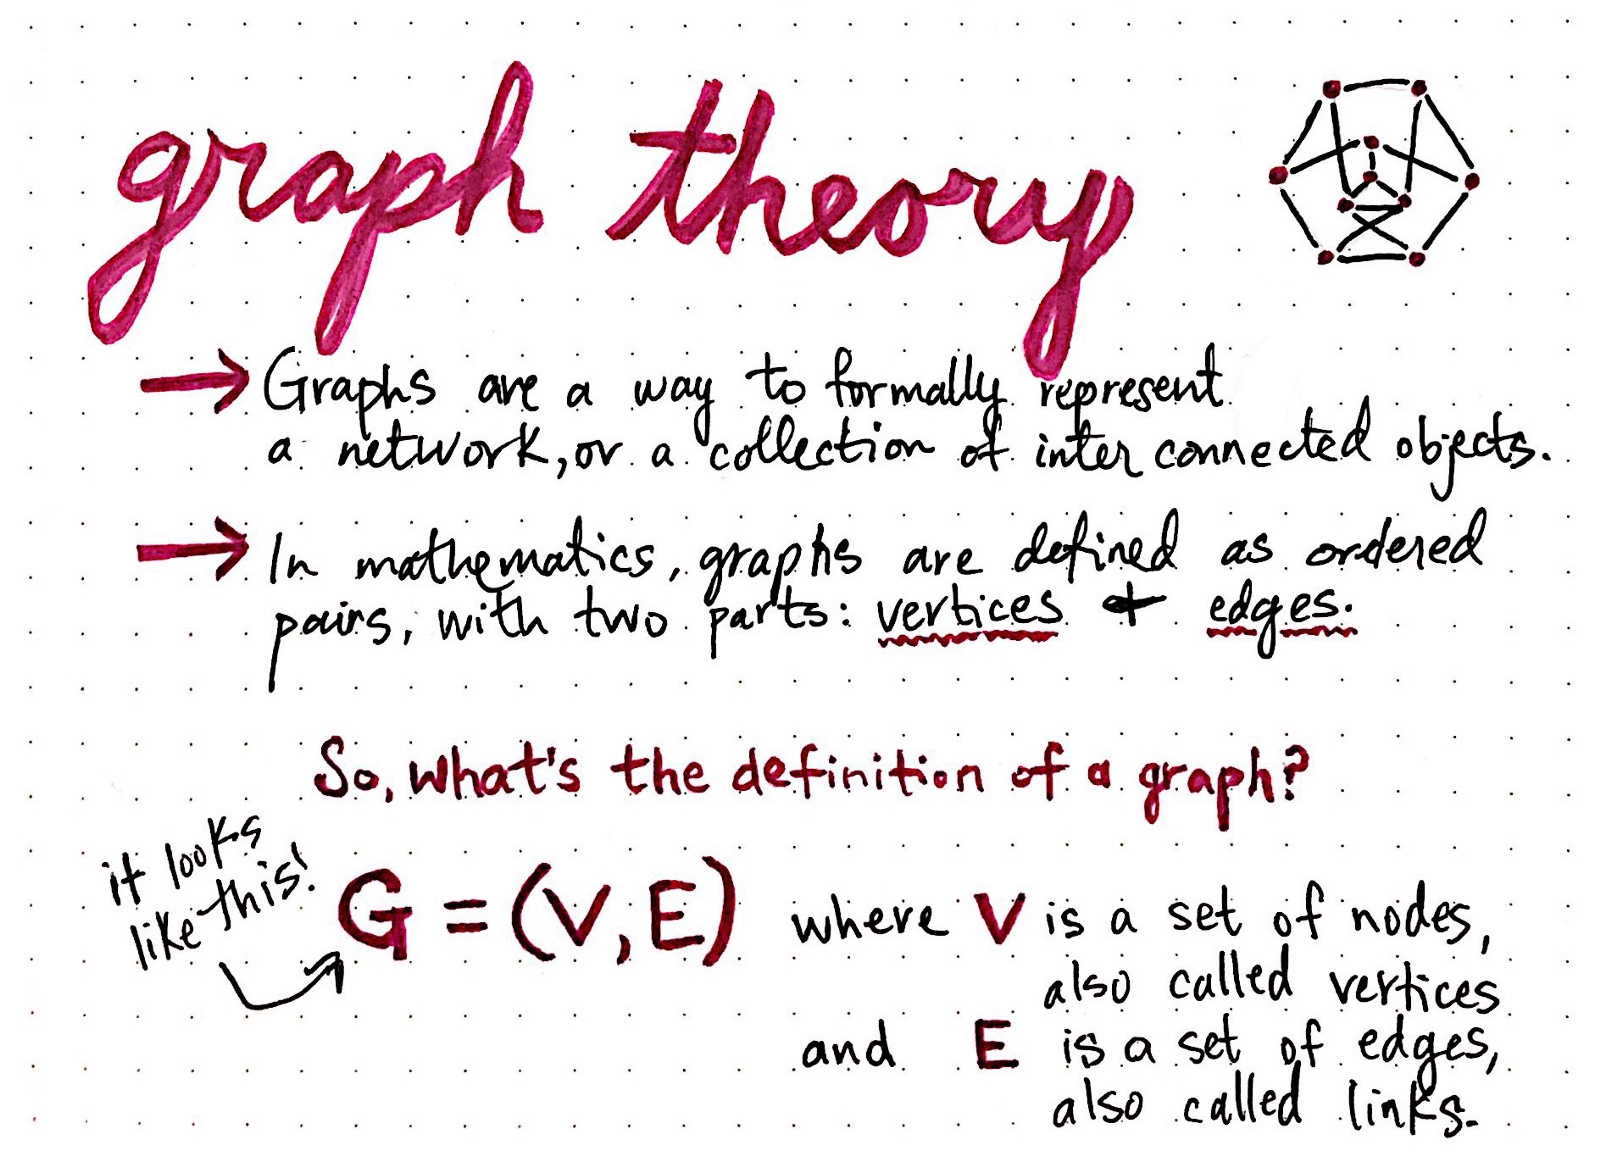 graph theory
→ Graphs are a way to formally represent
a network, or a collection of interconnected objects.
→ In mathematics, graphs are defined as ordered
pairs, with two parts: vertices + edges.
So, what's the definition of a graph?
it looks
like this!
G = (V, E) where V is a set of nodes,
also called vertices
and E is a set of edges,
also called links.